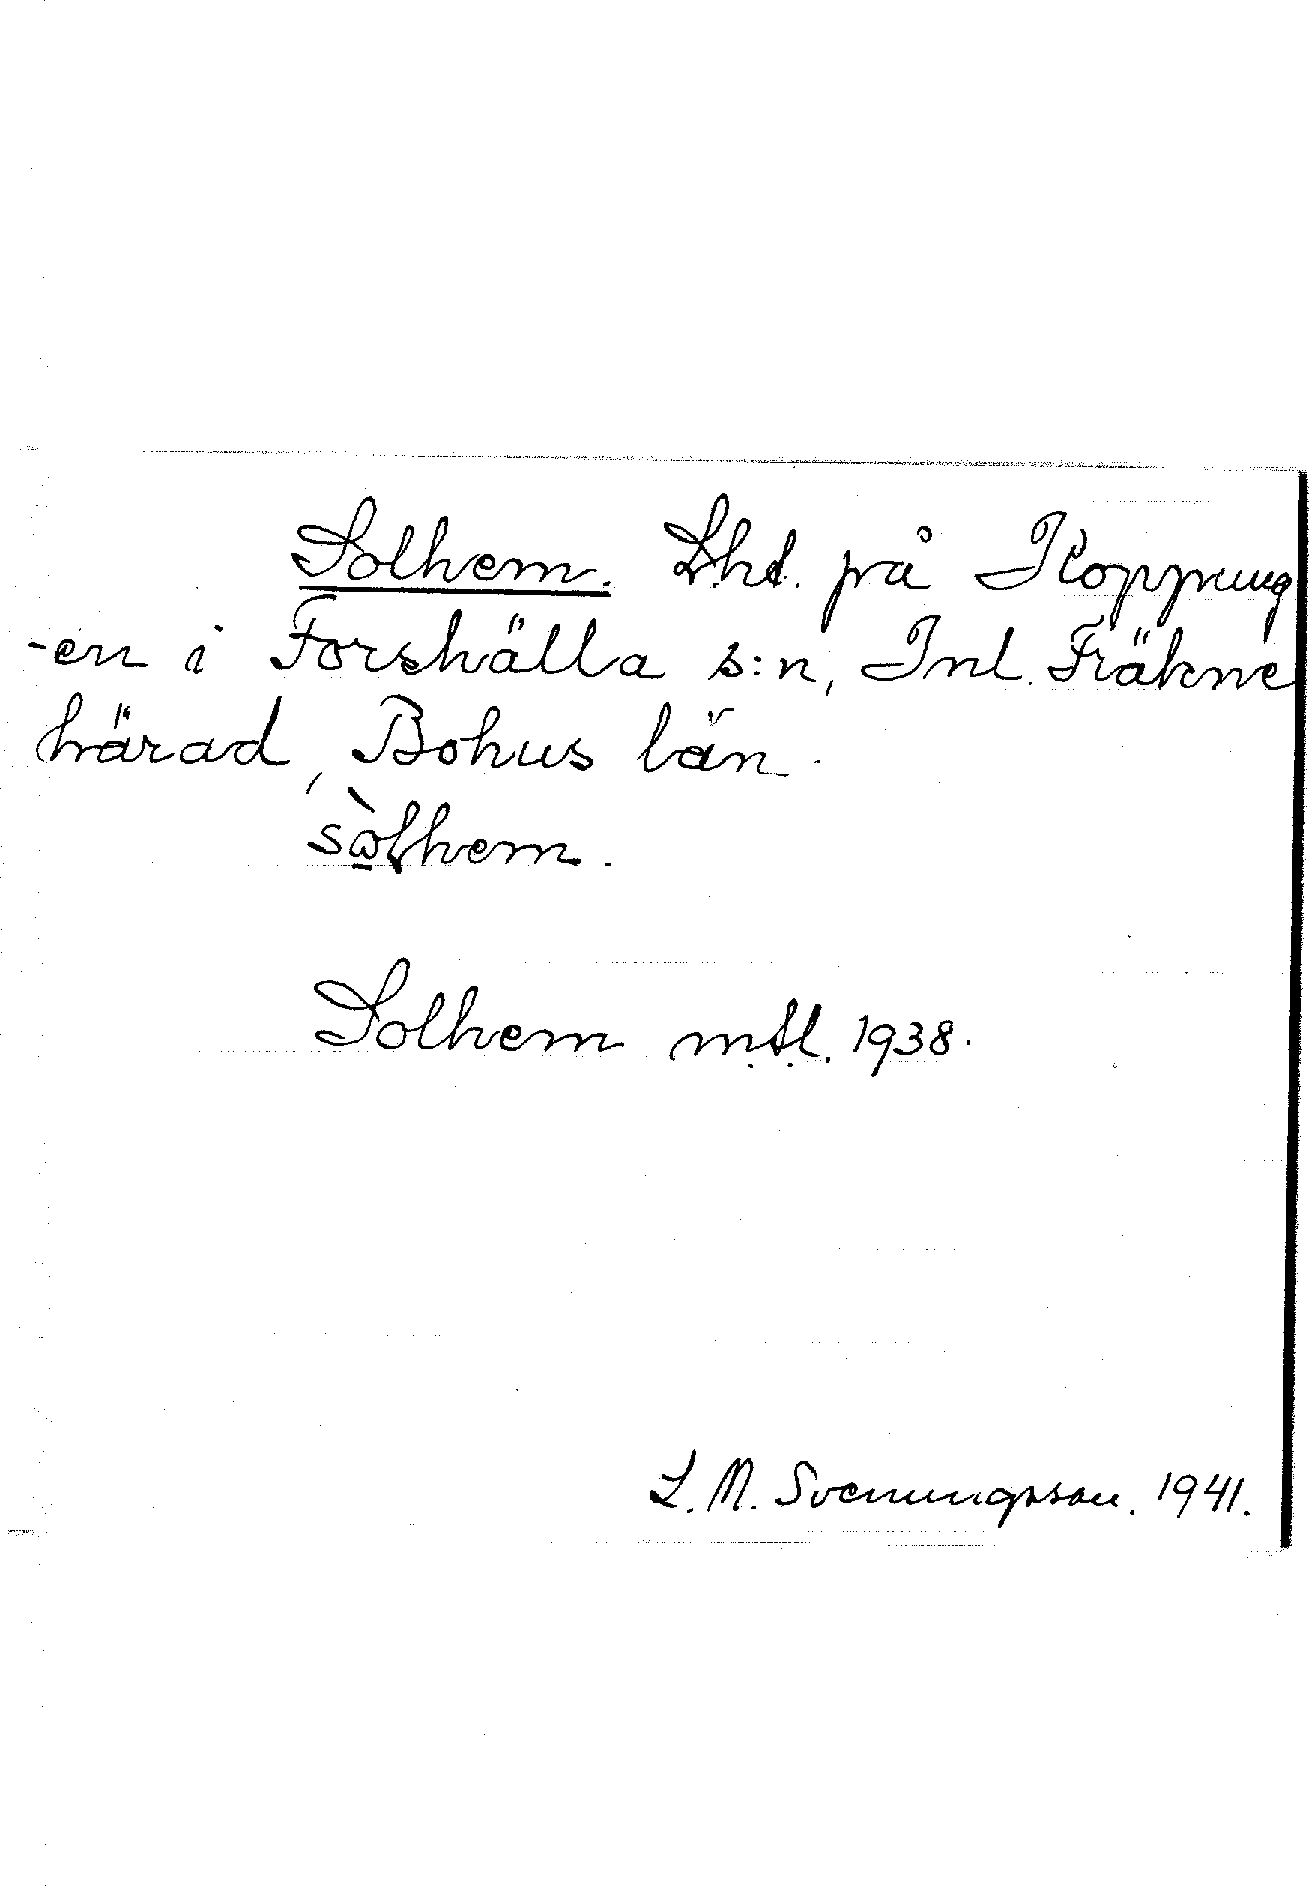 Solhem. Lht. på Koppung
-en i Forshälla s:n, Inl. Fräkne
härad, Bohus län.
sòlhem.
Solhem m.t.l. 1938.
L. M. Svenungsson. 1941.